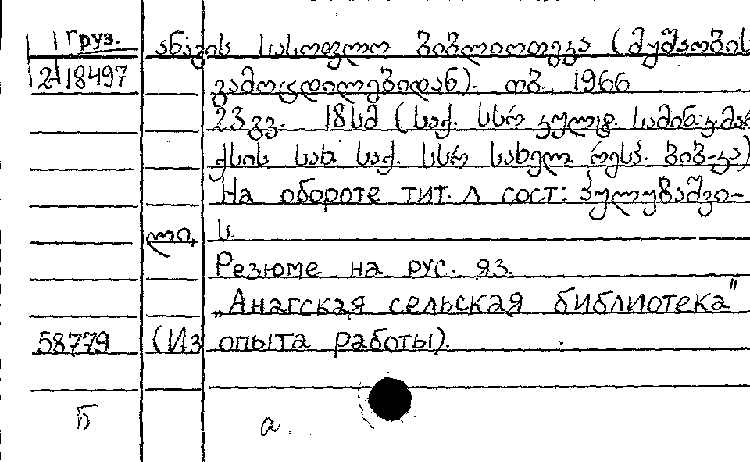 Груз. ანაგის სასოფლო ბიბლიოთეკა (მუშაობის
2-18497 გამოცდილებიდან). თბ. 1966
23 გვ. 18 სმ (საქ. სსრ კულტ. სამინ. კ. მარ
ქსის სახ. საქ. სსრ სახელმ. რესპ. ბიბ-კა)
На обороте тит. л сост:
ლი, ს.
Резюме на рус. яз.
„Анагская сельская библиотека"
58779 (Из опыта работы).
Б а.